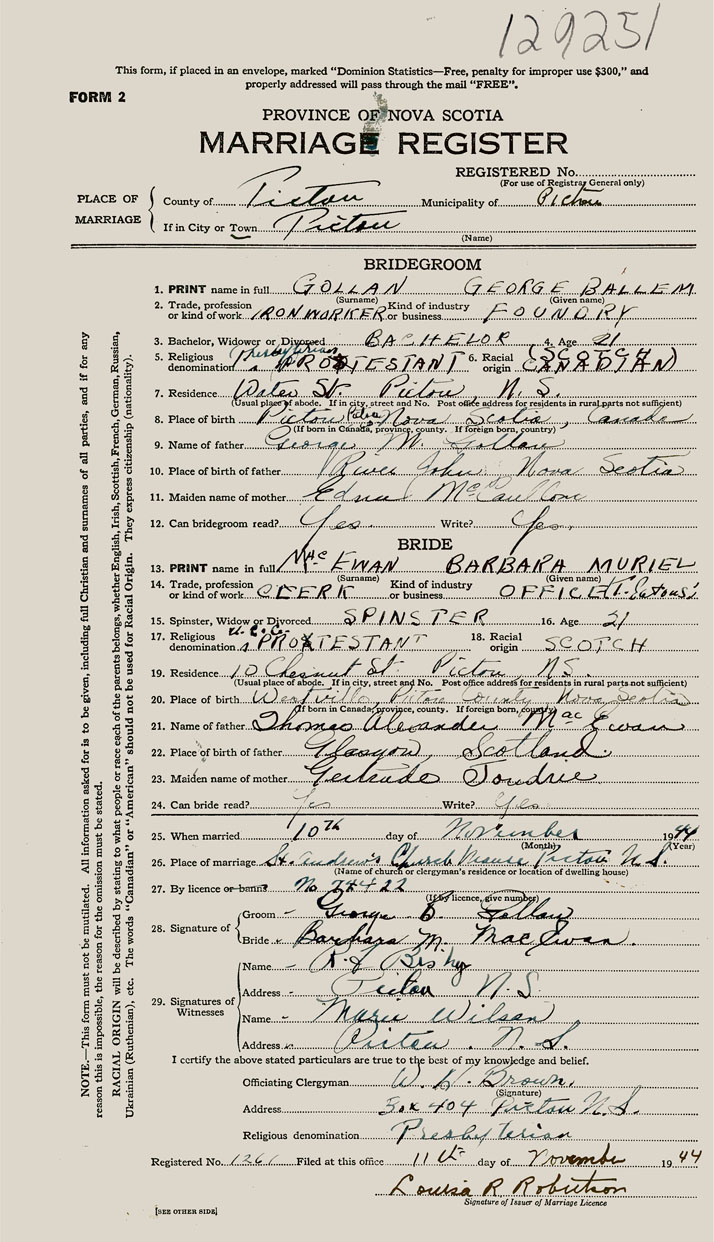 129251
This form, if placed in an envelope, marked "Dominion Statistics—Free, penalty for improper use $300," and
properly addressed will pass through the mail "FREE".
FORM 2
PROVINCE OF NOVA SCOTIA
MARRIAGE REGISTER
REGISTERED No.
(For use of Registrar General only)
PLACE OF MARRIAGE
County of Pictou Municipality of Pictou
If in City or Town Pictou
(Name)
BRIDEGROOM
1. PRINT name in full GOLLAN GEORGE BALLEM
(Surname) (Given name)
2. Trade, profession or kind of work IRONWORKER Kind of industry or business FOUNDRY
3. Bachelor, Widower or Divorced BACHELOR 4. Age 21
5. Religious denomination Presbyterian PROTESTANT 6. Racial origin (SCOTCH) CANADIAN)
7. Residence Water St. Pictou N.S.
(Usual place of abode. If in city, street and No. Post office address for residents in rural parts not sufficient)
8. Place of birth Pictou, Pictou Nova Scotia, Canada
(If born in Canada, province, county. If foreign born, country)
9. Name of father George M. Gollan
10. Place of birth of father River John, Nova Scotia
11. Maiden name of mother Edna
12. Can bridegroom read? Yes. Write? Yes.
BRIDE
13. PRINT name in full MacEWAN BARBARA MURIEL
(Surname) (Given name)
14. Trade, profession or kind of work CLERK Kind of industry or business OFFICE (T. Eatons)
15. Spinster, Widow or Divorced SPINSTER 16. Age 21
17. Religious denomination U.C.C. PROTESTANT 18. Racial origin SCOTCH
19. Residence 10 Chesnut St. Pictou, N.S.
(Usual place of abode. If in city, street and No. Post office address for residents in rural parts not sufficient)
20. Place of birth Westville, Pictou County Nova Scotia
(If born in Canada, province, county. If foreign born, country)
21. Name of father Thomas Alexander MacEwan
22. Place of birth of father Glasgow, Scotland.
23. Maiden name of mother Gertrude
24. Can bride read? Yes Write? Yes
25. When married 10th day of November 1944
(Month) (Year)
26. Place of marriage St. Andrew's Church Manse Pictou N.S.
(Name of church or clergyman's residence or location of dwelling house)
27. By licence or banns No 74422
(If by licence, give number)
28. Signature of
Groom - George B. Gollan
Bride - Barbara M. MacEwan.
29. Signatures of Witnesses
Name -
Address - Pictou N.S.
Name - Marie Wilson
Address - Pictou. N.S.
I certify the above stated particulars are true to the best of my knowledge and belief.
Officiating Clergyman Brown.
(Signature)
Address Box 404 Pictou N.S.
Religious denomination Presbyterian
Registered No. 1261 Filed at this office 11th day of November 1944
Louisa R. Robertson
Signature of Issuer of Marriage Licence
[SEE OTHER SIDE]
NOTE.—This form must not be mutilated. All information asked for is to be given, including full Christian and surnames of all parties, and if for any
reason this is impossible, the reason for the omission must be stated.
RACIAL ORIGIN will be described by stating to what people or race each of the parents belongs, whether English, Irish, Scottish, French, German, Russian,
Ukrainian (Ruthenian), etc. The words "Canadian" or "American" should not be used for Racial Origin. They express citizenship (nationality).